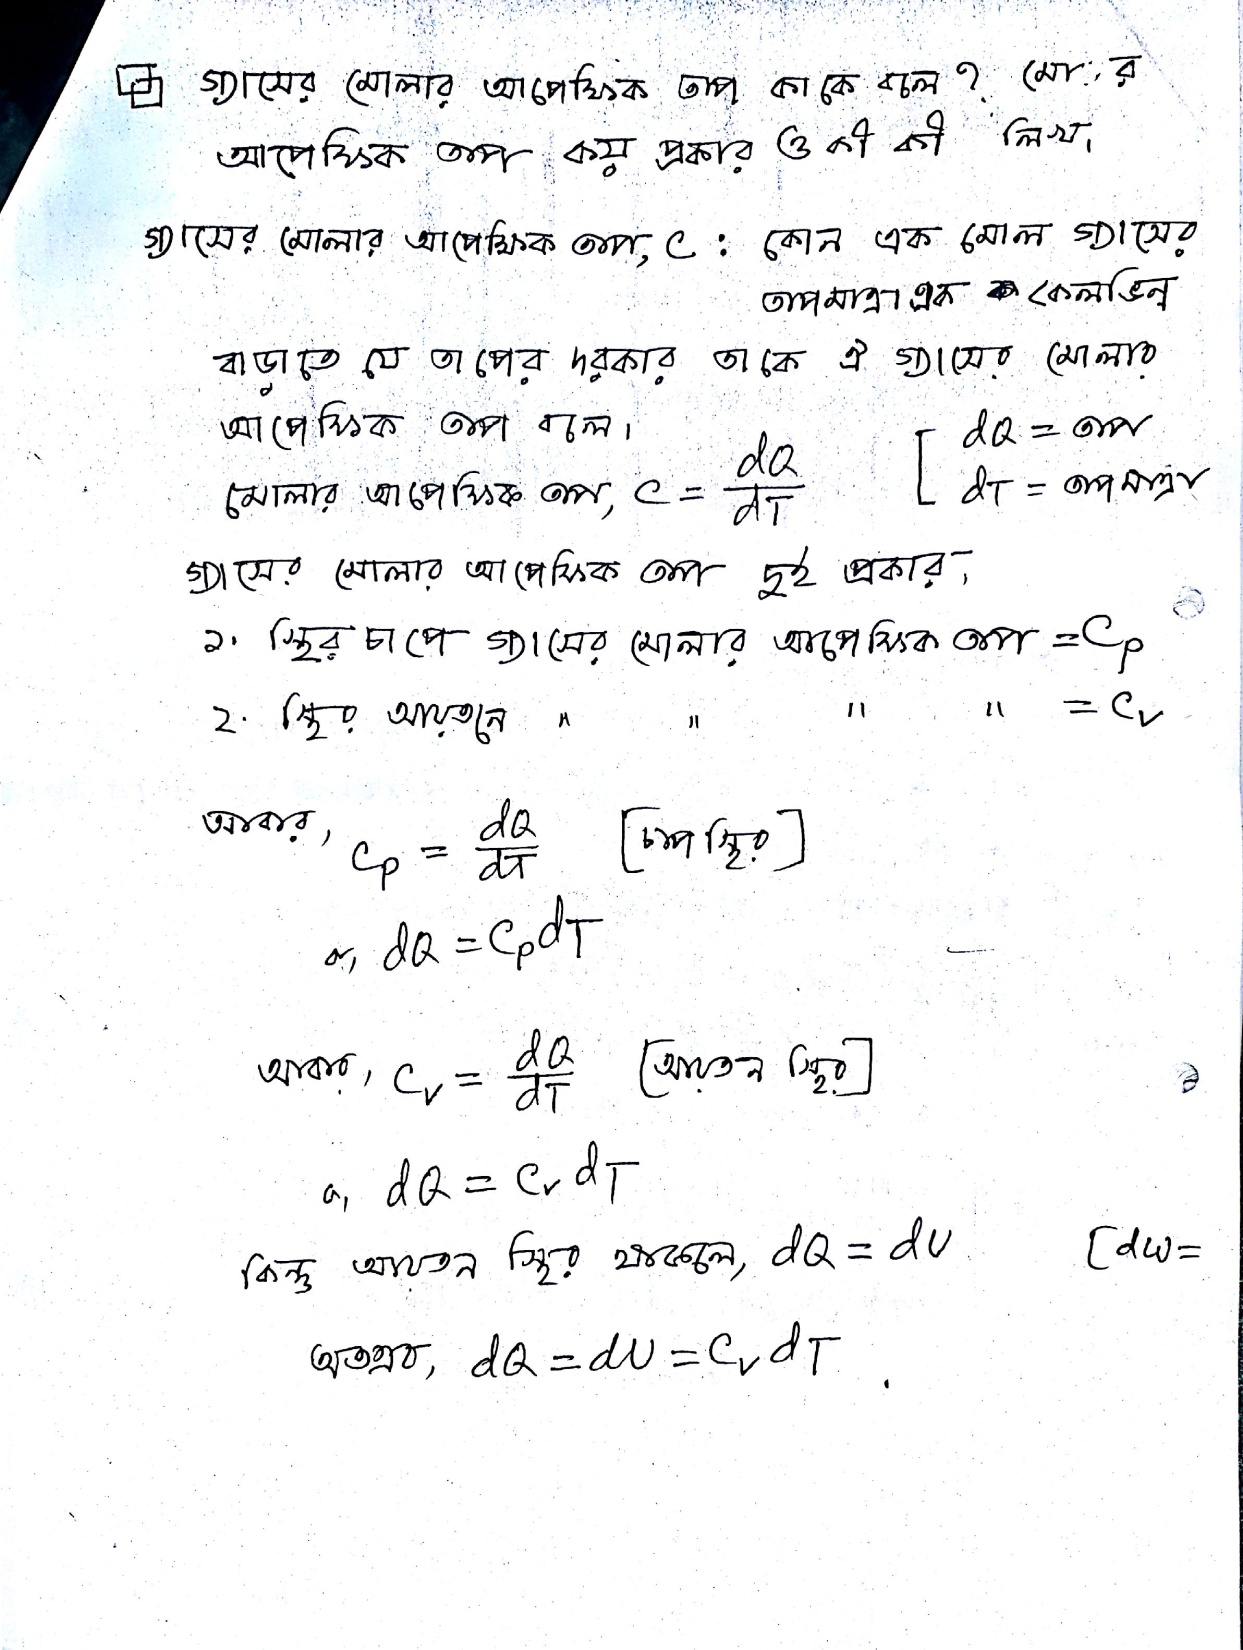 গ্যাসের মোলার আপেক্ষিক তাপ কাকে বলে? মো..র
আপেক্ষিক তাপ কয় প্রকার ও কী কী লিখ।
গ্যাসের মোলার আপেক্ষিক তাপ, C : কোন এক মোল গ্যাসের
তাপমাত্রা এক কেলভিন
বাড়াতে যে তাপের দরকার তাকে ঐ গ্যাসের মোলার
আপেক্ষিক তাপ বলে।
মোলার আপেক্ষিক তাপ, C = dQ/dT [ dQ = তাপ
dT = তাপমাত্রা
গ্যাসের মোলার আপেক্ষিক তাপ দুই প্রকার,
১. স্থির চাপে গ্যাসের মোলার আপেক্ষিক তাপ = Cp
২. স্থির আয়তনে " " " " = Cv
আবার, Cp = dQ/dT [চাপ স্থির]
বা, dQ = CpdT
আবার, Cv = dQ/dT [আয়তন স্থির]
বা, dQ = CvdT
কিন্তু আয়তন স্থির থাকলে, dQ = dU [dw=
অতএব, dQ = dU = CvdT.